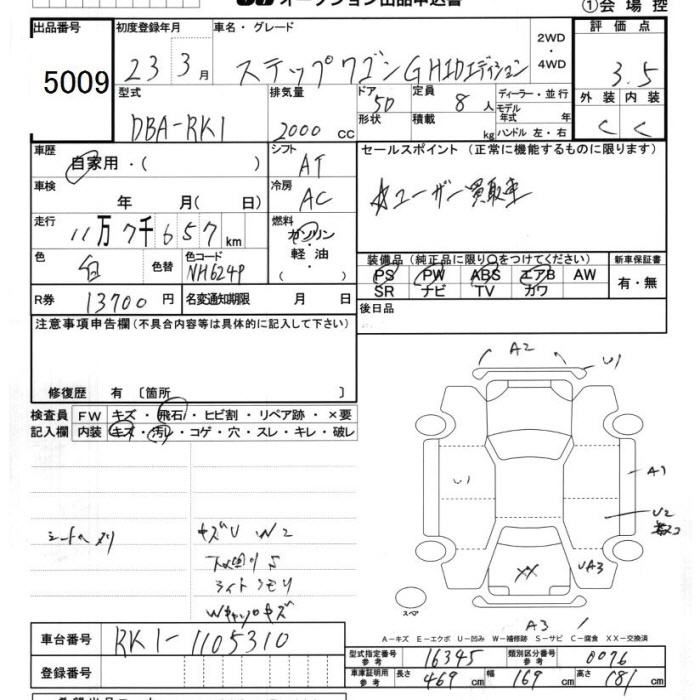 オークション出品申込書
①会場控
出品番号
5009
初度登録年月
23 3月
車名・グレード
ステップワゴン GHIDエディション
2WD
・
4WD
評価点
3.5
外装 内装
C C
型式
DBA-RK1
排気量
2000 cc
ドア
5D
形状
定員
8人
積載
kg
ディーラー・並行
モデル
年式 年
ハンドル 左・右
車歴
自家用・( )
シフト
AT
セールスポイント (正常に機能するものに限ります)
車検
年 月( 日)
冷房
AC
☆ユーザー買取車
走行
11万7千657km
燃料
ガソリン
・
軽油
・
( )
色
白
色替
色コード
NH624P
装備品 (純正品に限り○をつけてください)
PS PW ABS エアB AW
SR ナビ TV カワ
新車保証書
有・無
R券 13700円
名変通知期限 月 日
後日品
注意事項申告欄 (不具合内容等は具体的に記入して下さい)
修復歴 有 〔箇所 〕
検査員
記入欄
FW キズ・飛石・ヒビ割・リペア跡・×要
内装 キズ・汚レ・コゲ・穴・スレ・キレ・破レ
シートヘタリ
キズU W2
下回りS
ライトクモリ
Wキャリアキズ
A2
U1
U1
A1
U2
XX
UA3
スペア
A3
A-キズ E-エクボ U-凹み W-補修跡 S-サビ C-腐食 XX-交換済
車台番号
RK1-1105310
登録番号
型式指定番号
参考
16345
類別区分番号
参考
0076
車庫証明用
参考
長さ 469cm 幅 169cm 高さ 181cm